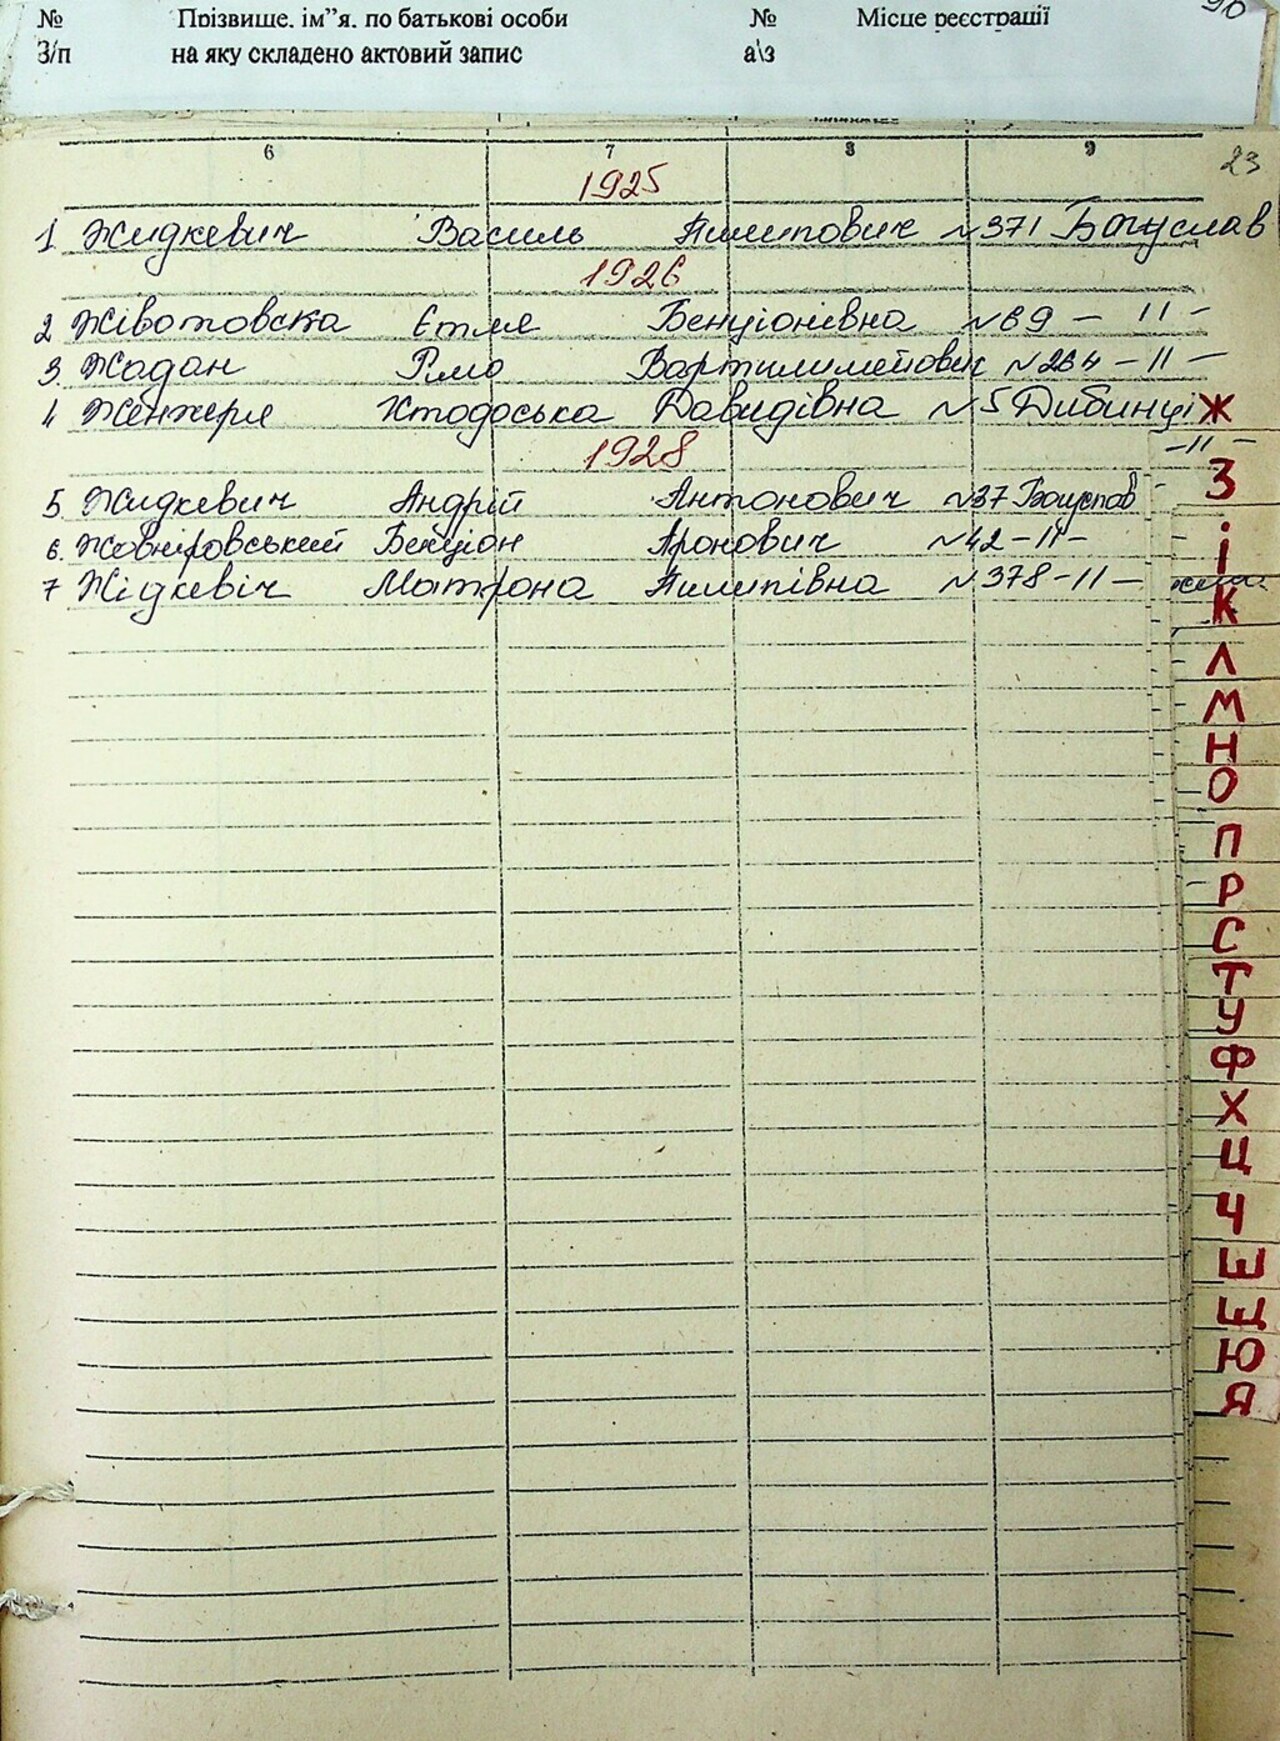 № Прізвище, ім"я, по батькові особи № Місце реєстрації
З/п на яку складено актовий запис а\з
90
6 7 8 9
23
1925
1 Жидкевич Василь Пилипович №371 Богуслав
1926
2 Жівотовська Єтля Бенціонівна №69 – 11 –
3. Жадан Вартилимейович №264 – 11 –
4 Женжеря Давидівна №5 Дибинці
– 11 –
1928
5. Жидкевич Андрій Антонович №37 Богуслав
6. Жовніровський Бенціон Аронович №42 – 11 –
7 Жідкевіч Матрона Пилипівна №378 – 11 –
Ж
З
і
К
Л
М
Н
О
П
Р
С
Т
У
Ф
Х
Ц
Ч
Ш
Щ
Ю
Я